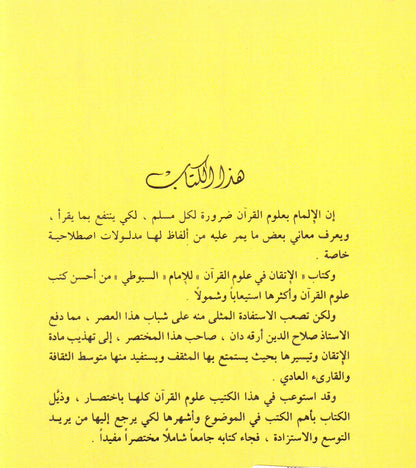 هذا الكتاب
إن الإلمام بعلوم القرآن ضرورة لكل مسلم ، لكي ينتفع بما يقرأ ،
ويعرف معاني بعض ما يمر عليه من ألفاظ لها مدلولات اصطلاحية
خاصة .
وكتاب « الإتقان في علوم القرآن » للإمام « السيوطي » من أحسن كتب
علوم القرآن وأكثرها استيعاباً وشمولاً .
ولكن تصعب الاستفادة المثلى منه على شباب هذا العصر ، مما دفع
الاستاذ صلاح الدين أرقه دان ، صاحب هذا المختصر ، إلى تهذيب مادة
الإتقان وتيسيرها بحيث يستمتع بها المثقف ويستفيد منها متوسط الثقافة
والقارىء العادي .
وقد استوعب في هذا الكتيب علوم القرآن كلها باختصار ، وذيَّل
الكتاب بأهم الكتب في الموضوع وأشهرها لكي يرجع إليها من يريد
التوسع والاستزادة ، فجاء كتابه جامعاً شاملاً مختصراً مفيداً .